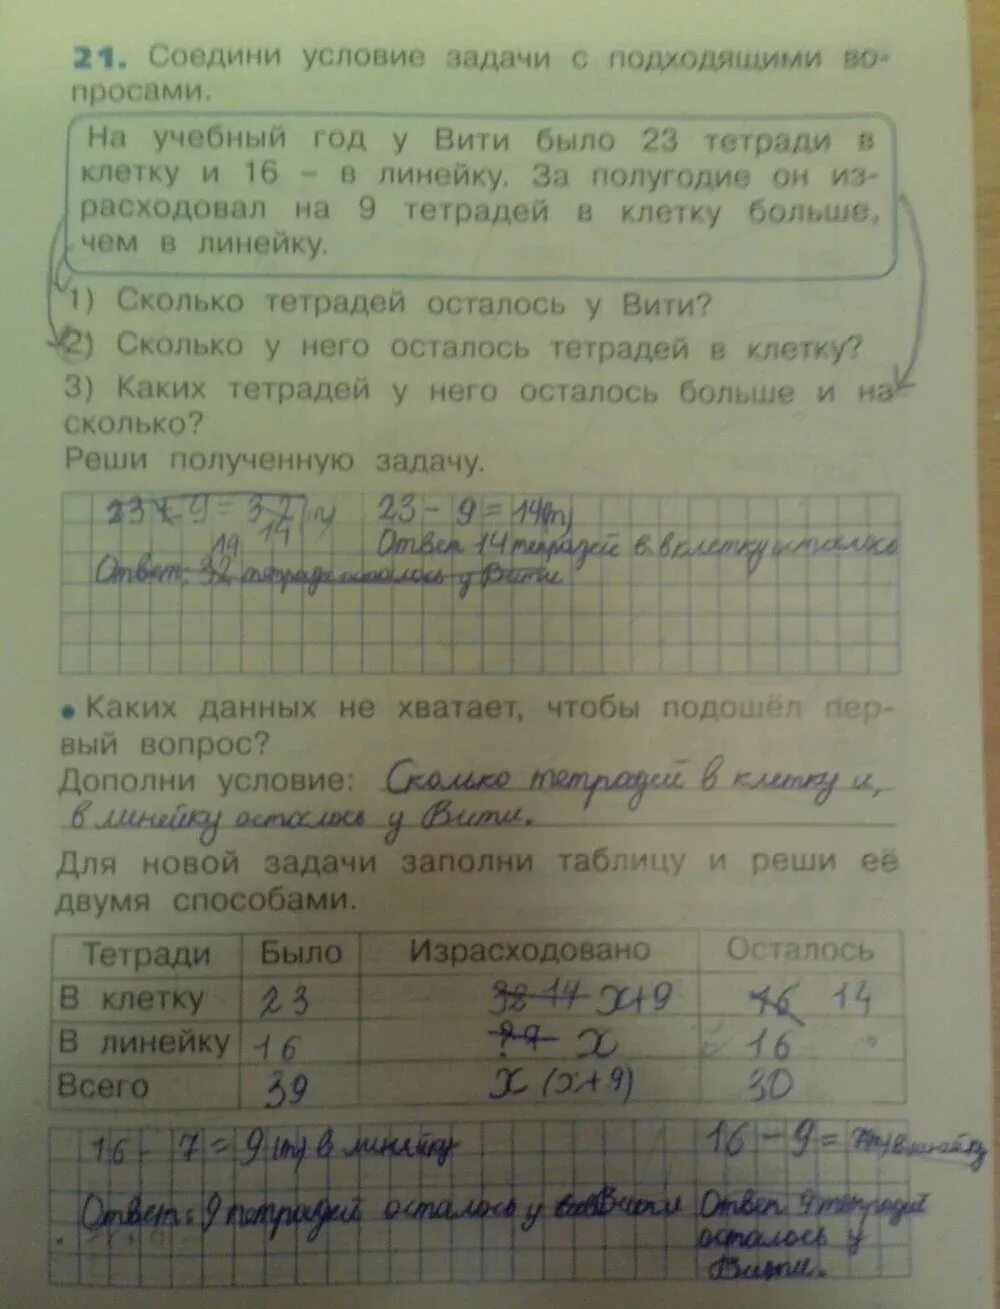 21. Соедини условие задачи с подходящими во-
просами.
На учебный год у Вити было 23 тетради в
клетку и 16 – в линейку. За полугодие он из-
расходовал на 9 тетрадей в клетку больше,
чем в линейку.
1) Сколько тетрадей осталось у Вити?
2) Сколько у него осталось тетрадей в клетку?
3) Каких тетрадей у него осталось больше и на
сколько?
Реши полученную задачу.
23+9=32 23-9=14(т)
14
19 Ответ 14 тетрадей в клетку осталось
Ответ: 32 тетради осталось у Вити
• Каких данных не хватает, чтобы подошёл пер-
вый вопрос?
Дополни условие: Сколько тетрадей в клетку и,
в линейку осталось у Вити.
Для новой задачи заполни таблицу и реши её
двумя способами.
Тетради Было Израсходовано Осталось
В клетку 23 32 14 х+9 16 14
В линейку 16 х 16
Всего 39 х (х+9) 30
16-7=9(т) в линейку 16-9=7(т) в линейку
Ответ: 9 тетрадей осталось у Вити Ответ 9 тетрадей
осталось у
Вити.